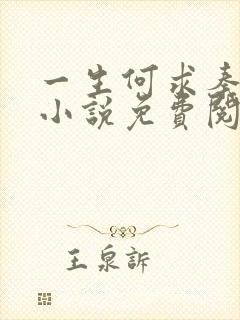 一生何求奏
小說免費閱
王泉訴